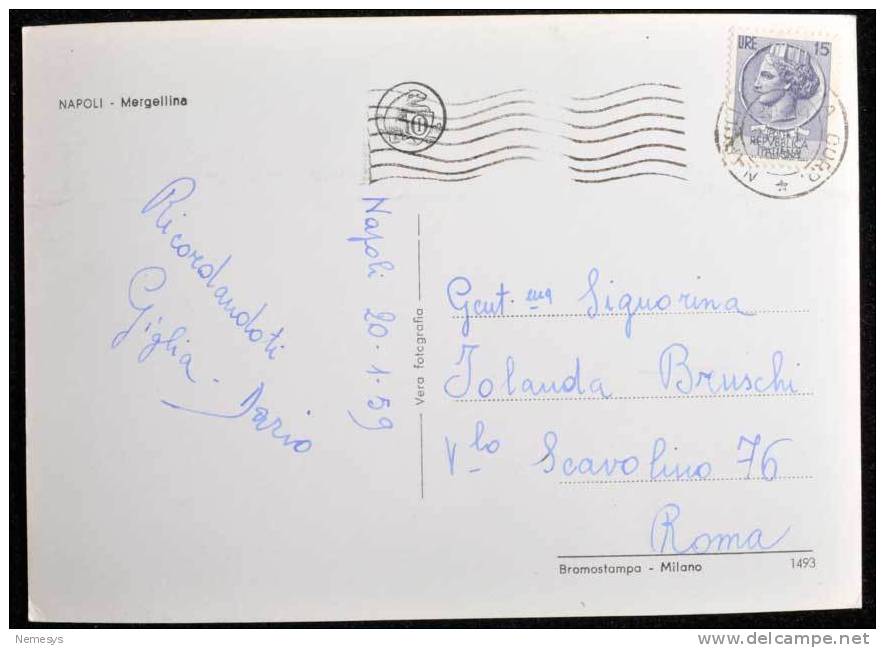 NAPOLI - Mergellina
LIRE 15
REPVBBLICA
ITALIANA
Ricordandoti
Giglia - Dario
Napoli 20·1·59
Vera fotografia
Gent.ma Signorina
Jolanda Bruschi
V.lo Scavolino 76
Roma
Bromostampa - Milano
1493
Nemesys
delcampe.net